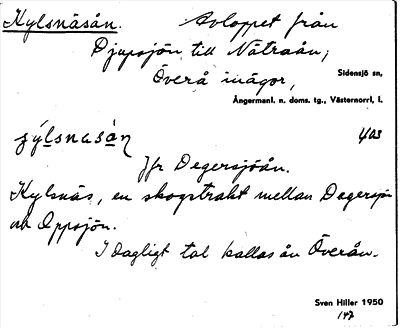 Kylsnäsån. Avloppet från
Djupsjön till Nätraån;
Överå inägor,
Sidensjö sn,
Ångermanl. n. doms. tg., Västernorrl. l.
403
Jfr Degersjöån.
Kylsnäs, en skogstrakt mellan Degersjö
och Oppsjön.
I dagligt tal kallas ån Överån.
Sven Hiller 1950
147